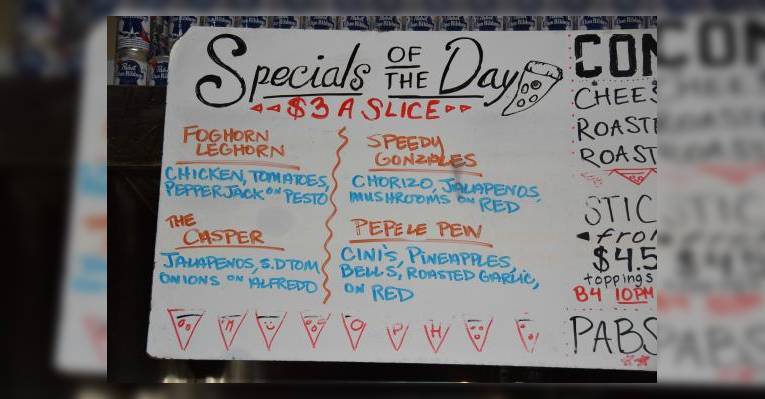 Specials OF THE Day
$3 A SLICE
FOGHORN
LEGHORN
CHICKEN, TOMATOES,
PEPPERJACK ON PESTO
THE
CASPER
JALAPENOS, S.DTOM
ONIONS ON ALFREDO
SPEEDY
GONZALES
CHORIZO, JALAPENOS,
MUSHROOMS ON RED
PEPELE PEW
CINI'S, PINEAPPLES,
BELLS, ROASTED GARLIC,
ON RED
CON
CHEES
ROASTE
ROAST
STIC
fro
$4.5
toppings
B4 10PM
PABS